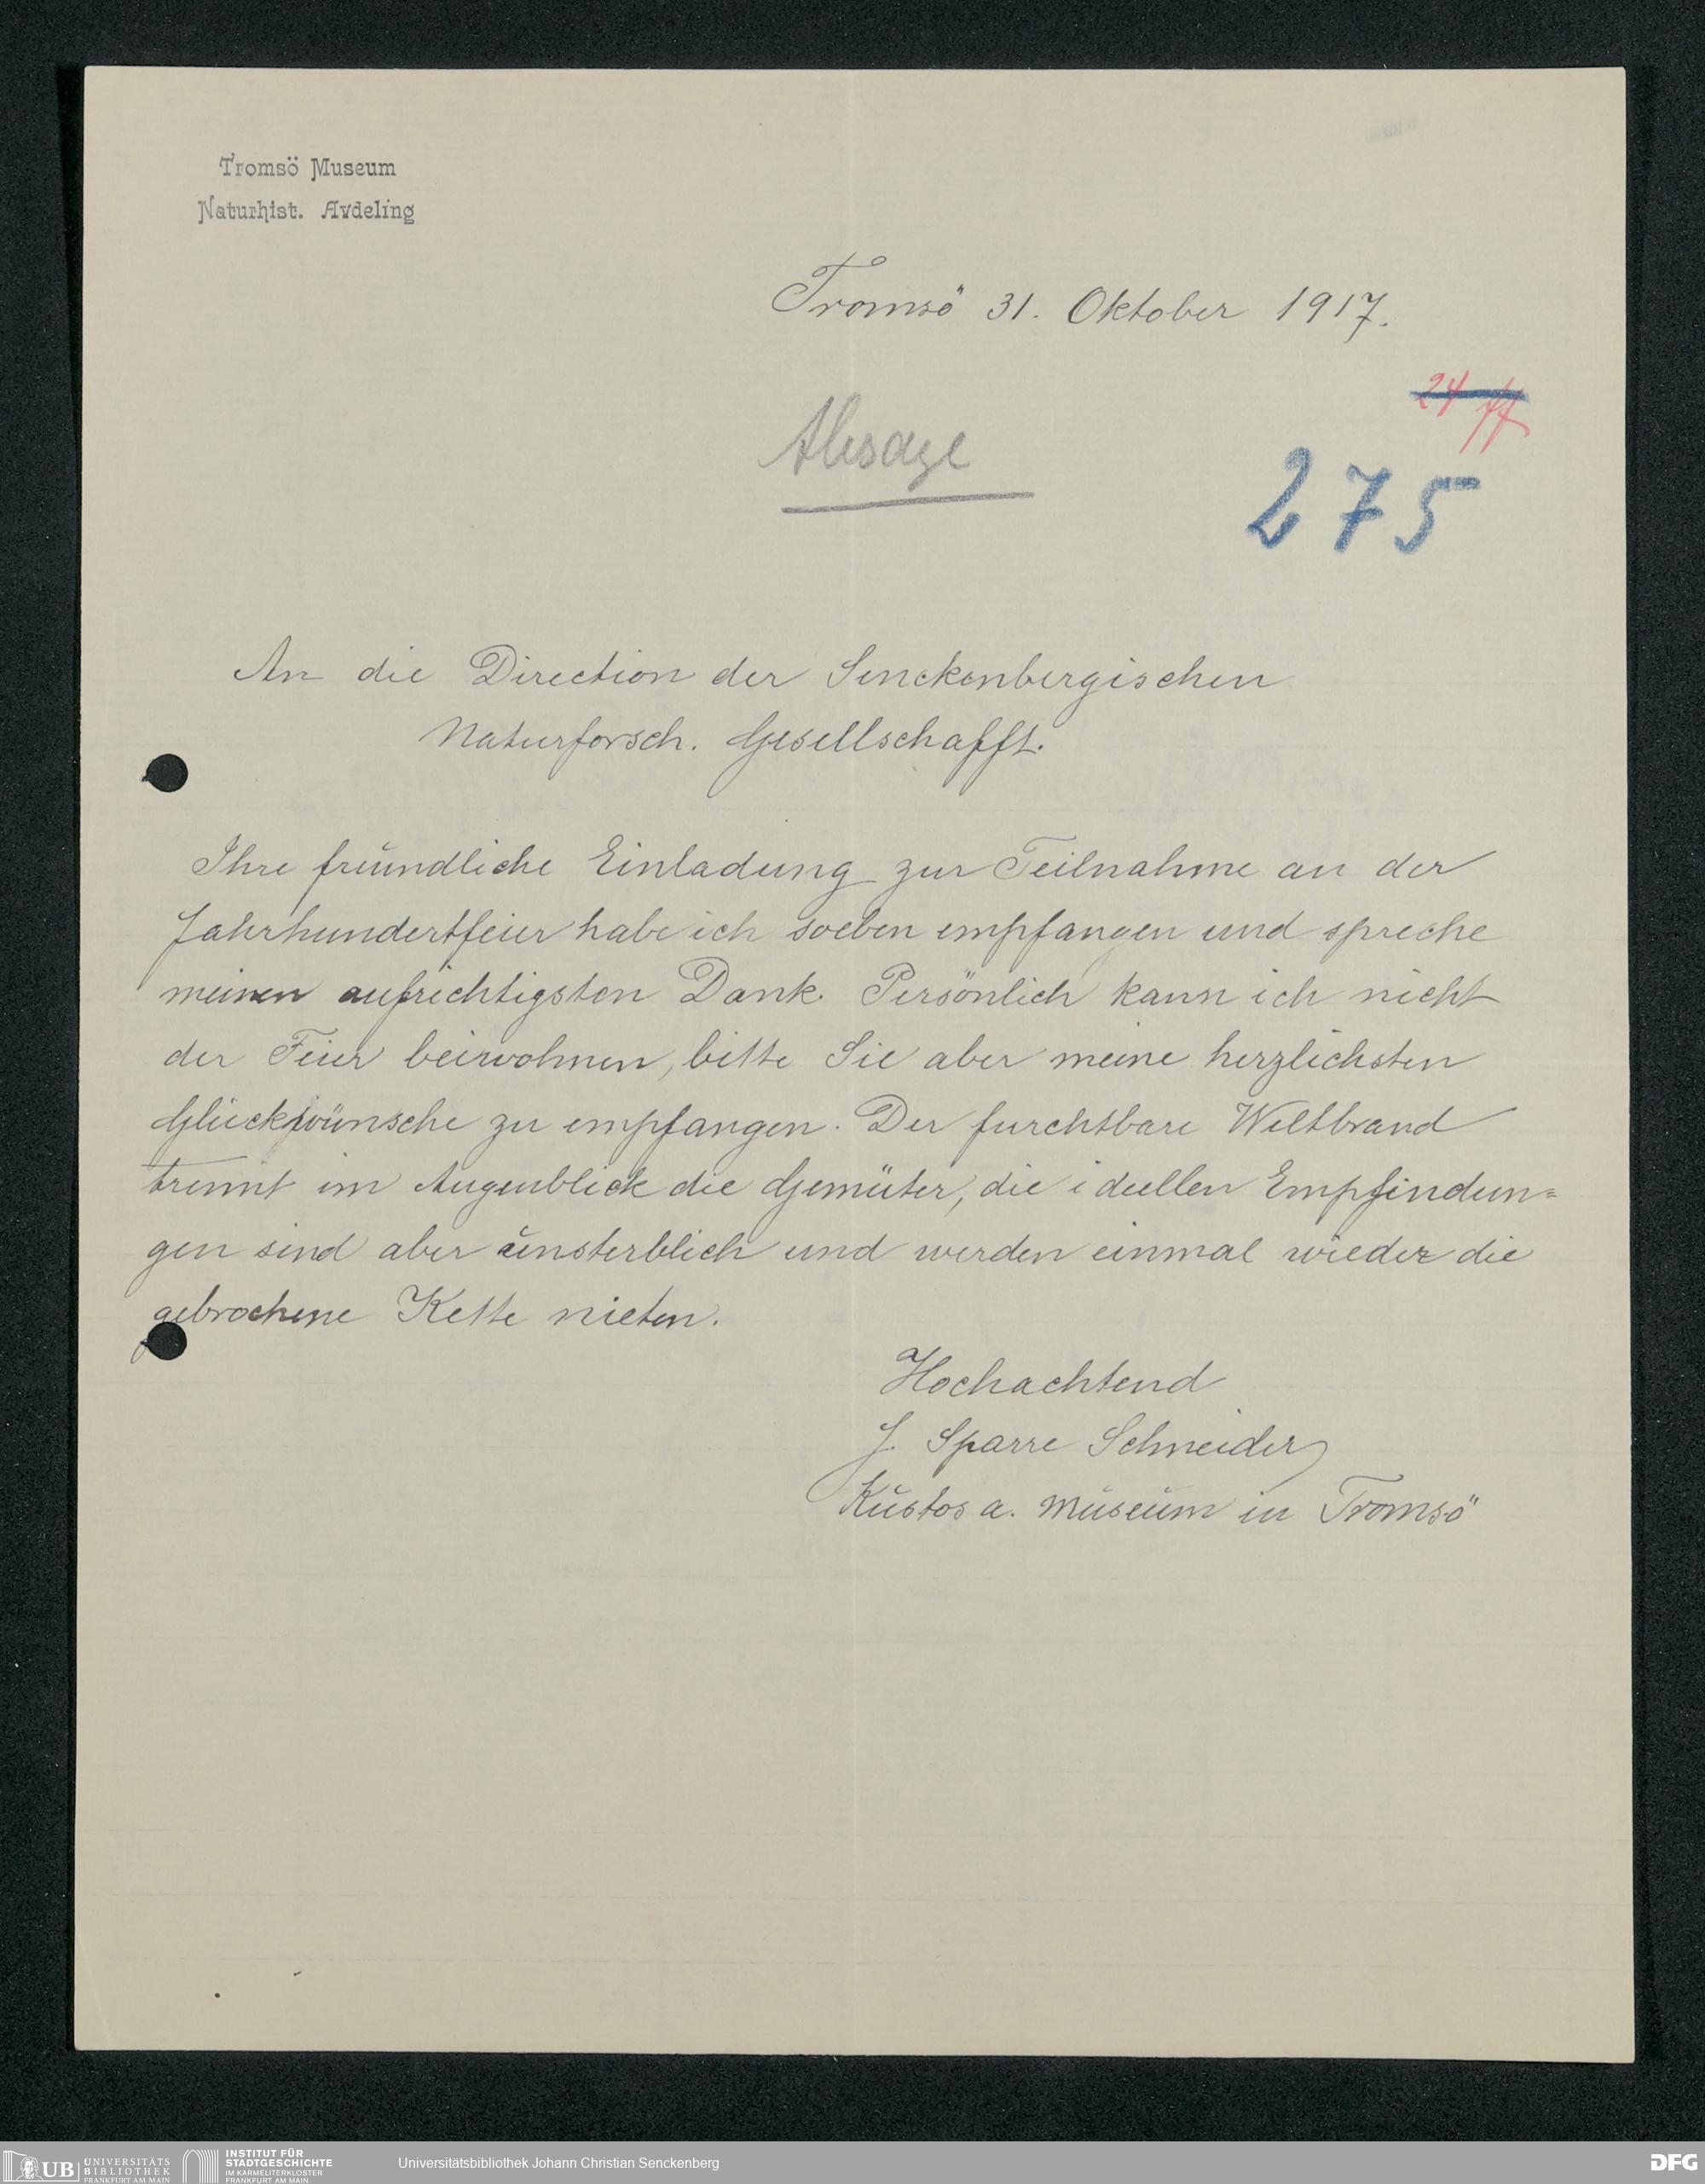 Tromsö Museum
Naturhist. Avdeling
Tromsö 31. Oktober 1917.
24
Absage
275
An die Direction der Senckenbergischen
Naturforsch. Gesellschafft.
Ihre freundliche Einladung zur Teilnahme an der
Jahrhundertfeier habe ich soeben empfangen und spreche
meinen aufrichtigsten Dank. Persönlich kann ich nicht
der Feier beiwohnen, bitte Sie aber meine herzlichsten
Glückwünsche zu empfangen. Der furchtbare Weltbrand
trennt im Augenblick die Gemüter, die ideellen Empfindun=
gen sind aber unsterblich und werden einmal wieder die
gebrochene Kette nieten.
Hochachtend
J. Sparre Schneider
Kustos a. Museum in Tromsö
UB UNIVERSITÄTS
BIBLIOTHEK
FRANKFURT AM MAIN
INSTITUT FÜR
STADTGESCHICHTE
IM KARMELITERKLOSTER
FRANKFURT AM MAIN
Universitätsbibliothek Johann Christian Senckenberg
DFG